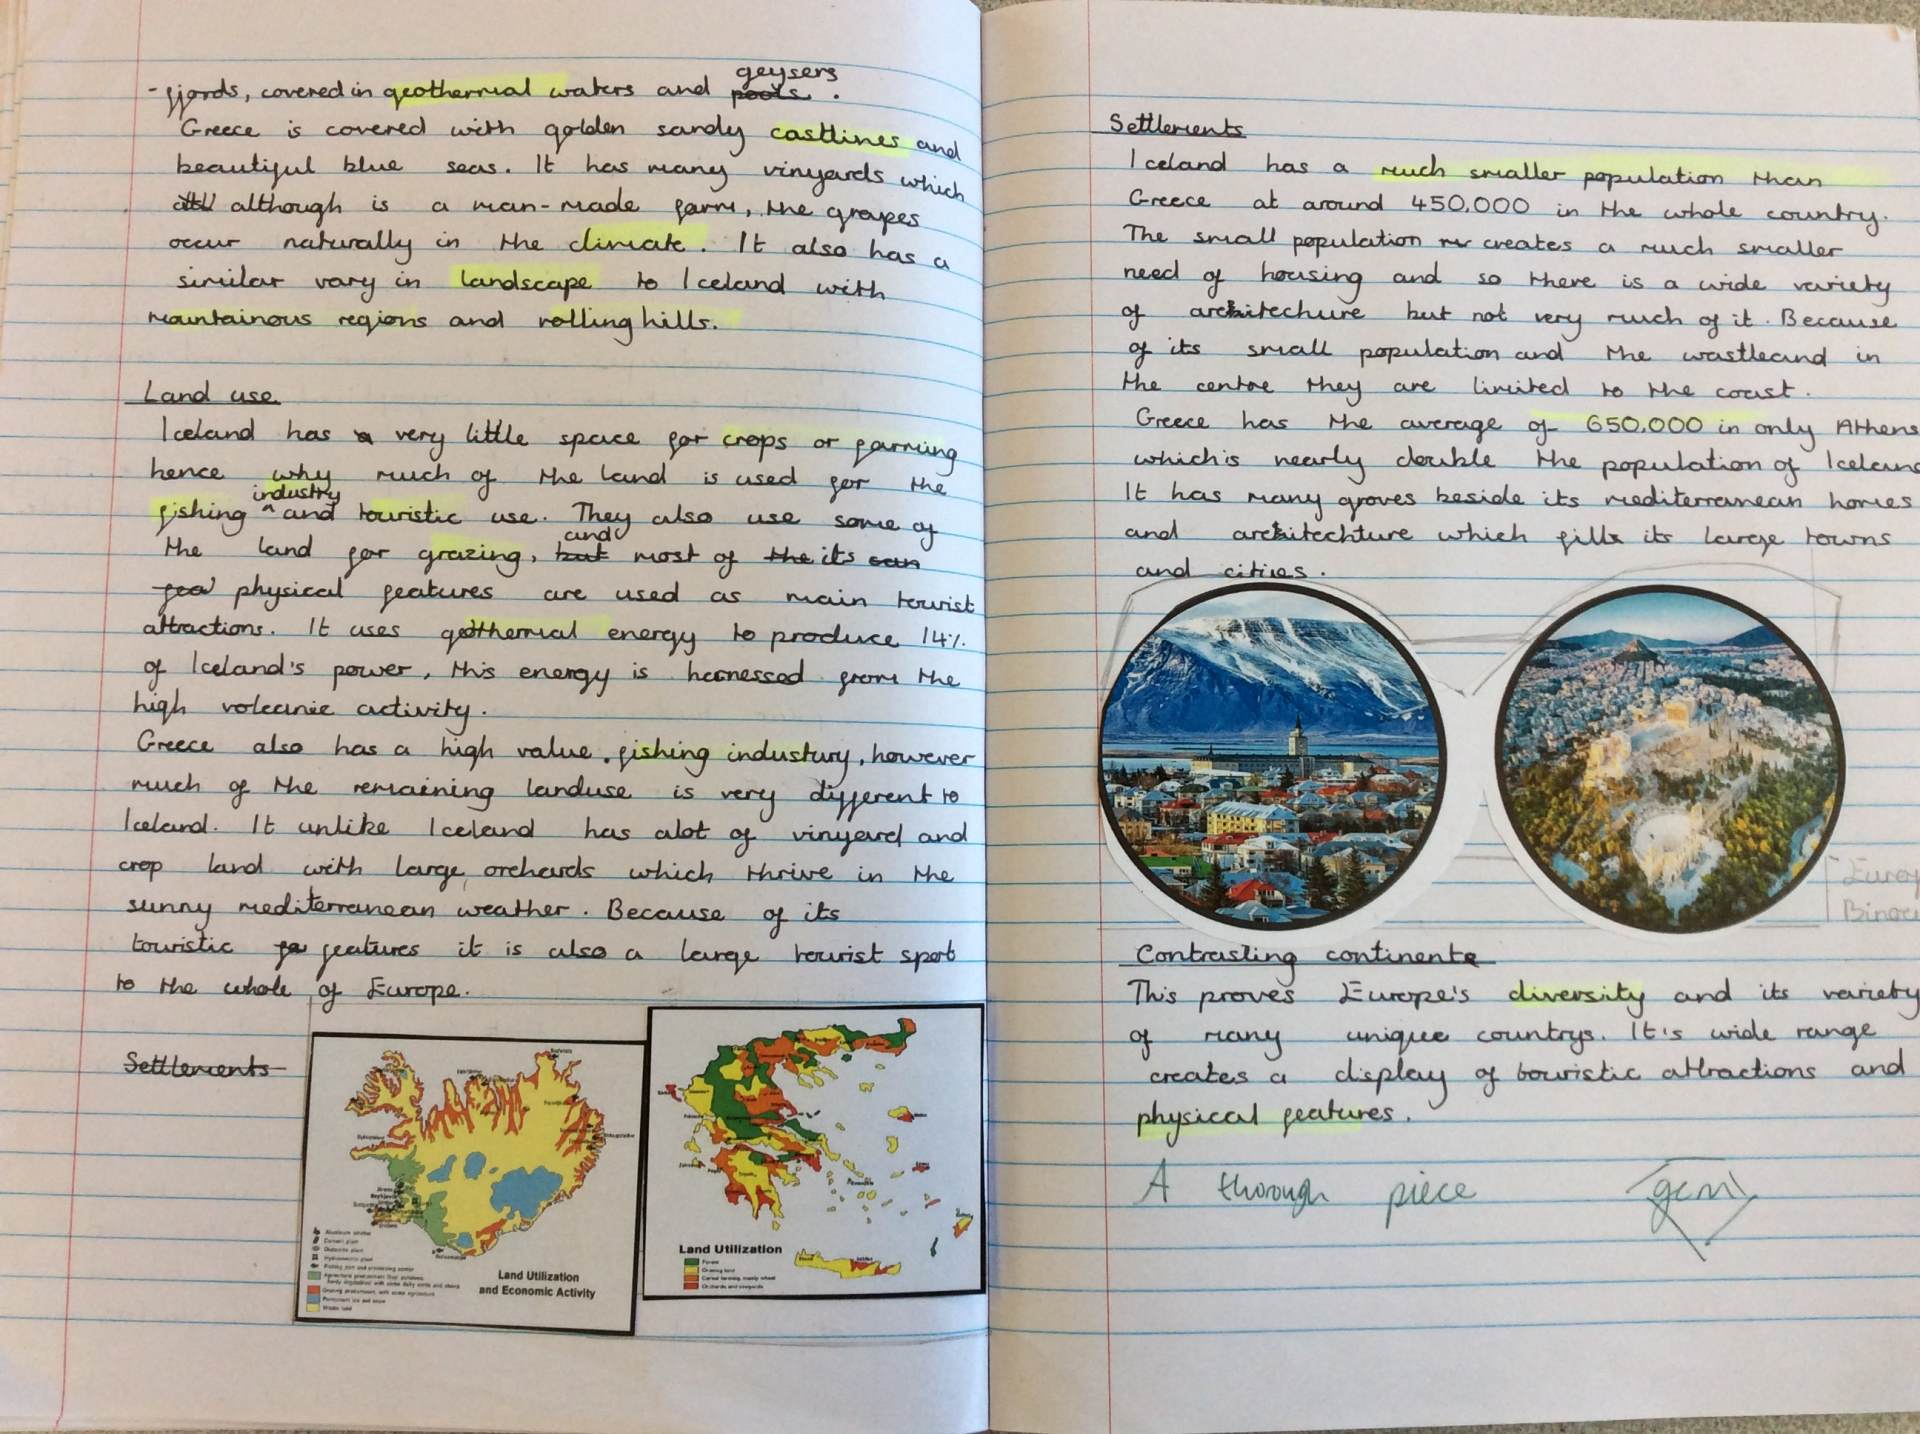 - fjords, covered in geothermal waters and pools geysers.
Greece is covered with golden sandy castlines and
beautiful blue seas. It has many vinyards which
although is a man-made farm, the grapes
occur naturally in the climate. It also has a
similar vary in landscape to Iceland with
mountainous regions and rolling hills.
Land use
Iceland has a very little space for crops or farming
hence why much of the land is used for the
fishing industry and touristic use. They also use some of
the land for grazing, but and most of the its can
physical features are used as main tourist
attractions. It uses geothermal energy to produce 14%
of Iceland's power, this energy is harnessed from the
high volcanic activity.
Greece also has a high value fishing industury, however
much of the remaining landuse is very different to
Iceland. It unlike Iceland has alot of vinyard and
crop land with large orchards which thrive in the
sunny mediterranean weather. Because of its
touristic features it is also a large tourist spot
to the whole of Europe.
Settlements
Land Utilization
and Economic Activity
Land Utilization
Forest
Grazing land
Cereal farming, mostly wheat
Orchards and vineyards
Settlements
Iceland has a much smaller population than
Greece at around 450,000 in the whole country.
The small population creates a much smaller
need of housing and so there is a wide variety
of architechure but not very much of it. Because
of its small population and the wastleand in
the centre they are limited to the coast.
Greece has the average of 650,000 in only Athens
which is nearly double the population of
It has many groves beside its mediterranean homes
and architechture which fills its large towns
and cities.
Contrasting continents
This proves Europe's diversity and its variety
of many unique countrys. It's wide range
creates a display of touristic attractions and
physical features.
A thorough piece
gem